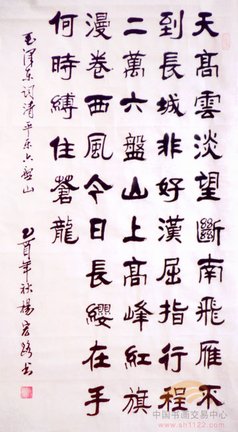 天髙雲淡望斷南飛雁不
到長城非好漢屈指行程
二萬六盤山上髙峰紅旗
漫卷西風今日長纓在手
何時縛住蒼龍
毛澤东词清平乐六盤山
乙酉年秋楊路书
中国书画交易中心
www.sh1122.com